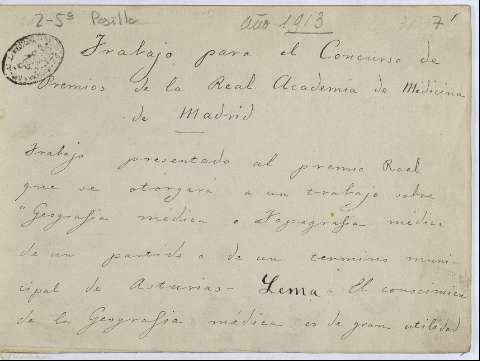 2-5ª Pasillo Año 1913 7
Trabajo para el Concurso de
Premios de la Real Academia de Medicina
de Madrid
Trabajo presentado al premio Roel
que se otorgará a un trabajo sobre
"Geografia médica o Topografia médica
de un partido o de un termino muni-
cipal de Asturias - Lema - El conocimien
de la Geografia médica es de gran utilidad